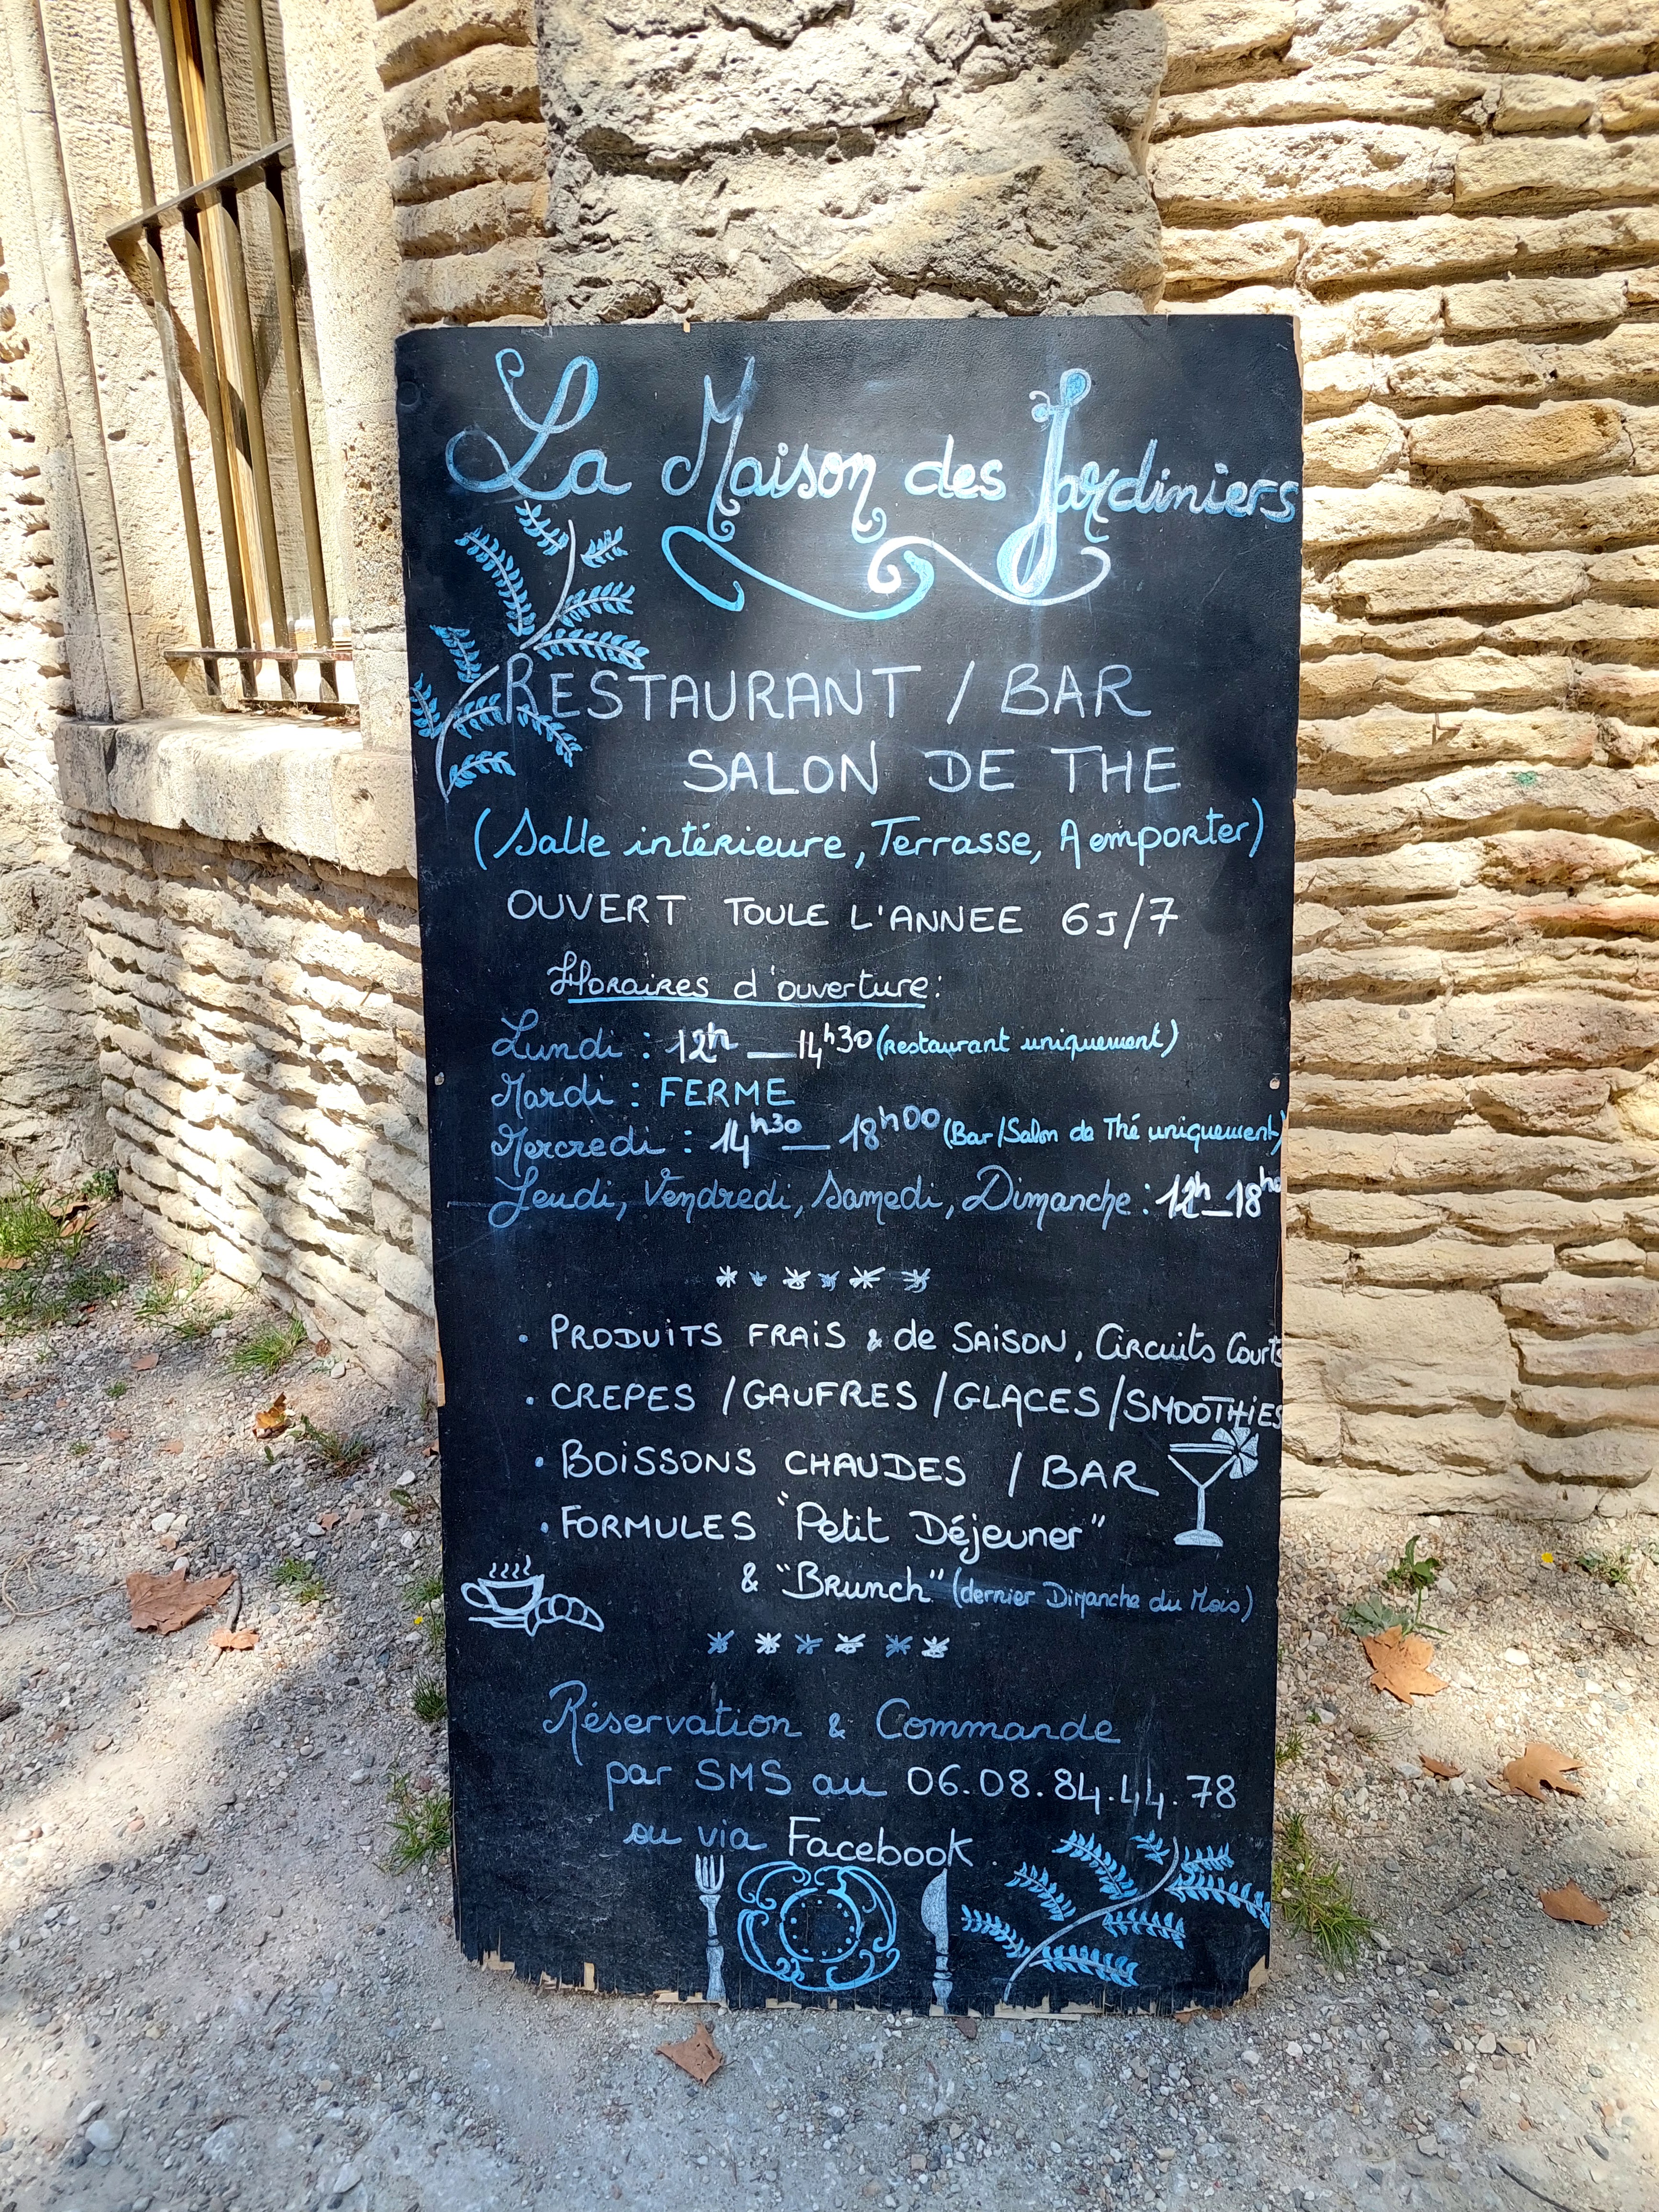 La Maison des Jardiniers
RESTAURANT / BAR
SALON DE THE
(Salle intérieure, Terrasse, A emporter)
OUVERT TOUTE L'ANNEE 6J/7
Horaires d'ouverture:
Lundi : 12h — 14h30 (restaurant uniquement)
Mardi : FERME
Mercredi : 14h30 — 18h00 (Bar/Salon de Thé uniquement)
Jeudi, Vendredi, Samedi, Dimanche : 12h — 18h00
• PRODUITS FRAIS & de SAISON, Circuits Courts
• CREPES / GAUFRES / GLACES / SMOOTHIES
• BOISSONS CHAUDES / BAR
• FORMULES "Petit Déjeuner"
& "Brunch" (dernier Dimanche du Mois)
Réservation & Commande
par SMS au 06.08.84.44.78
ou via Facebook.